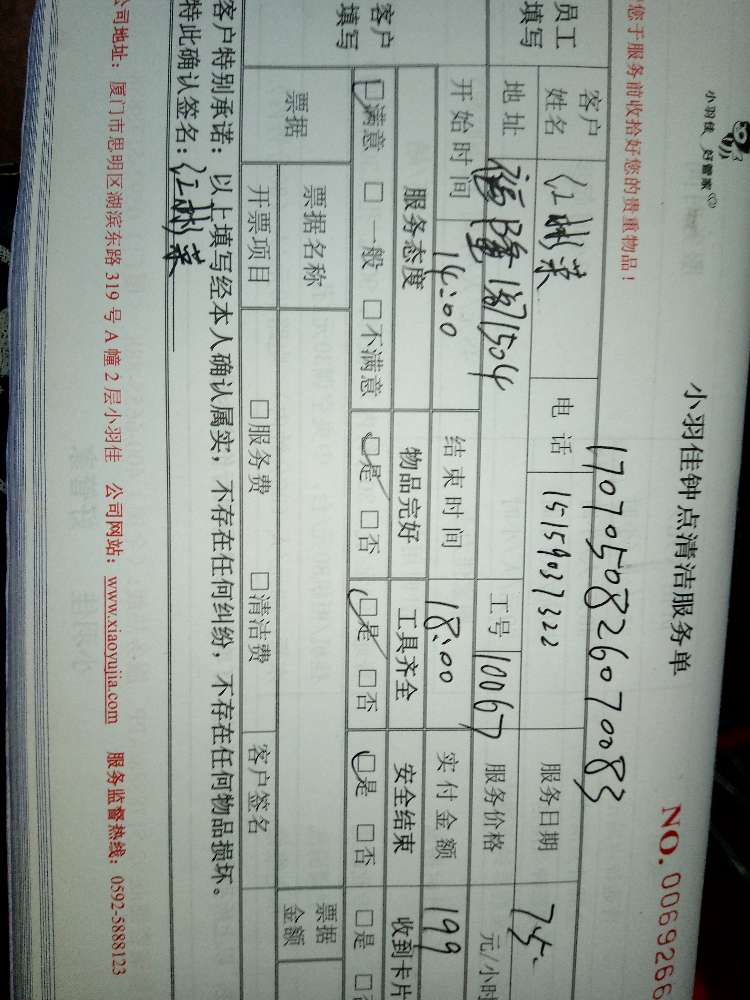 小羽佳 好管家
小羽佳钟点清洁服务单
NO. 0069266
您于服务前收拾好您的贵重物品！
1707050826070083
员工填写
客户姓名 江彬荣 电话 15159037322 服务日期 75.
地址 福隆 1504 工号 10067 服务价格 元/小时
客户填写
开始时间 14:00 结束时间 18:00 实付金额 199
服务态度 物品完好 工具齐全 安全结束 收到卡片
□满意 □一般 □不满意 □是 □否 □是 □否 □是 □否 □是
票据 票据名称 票据金额
开票项目 □服务费 □清洁费 客户签名
客户特别承诺：以上填写经本人确认属实，不存在任何纠纷，不存在任何物品损坏。
特此确认签名：江彬荣
公司地址：厦门市思明区湖滨东路 319 号 A 幢 2 层小羽佳 公司网站：www.xiaoyujia.com 服务监督热线：0592-5888123